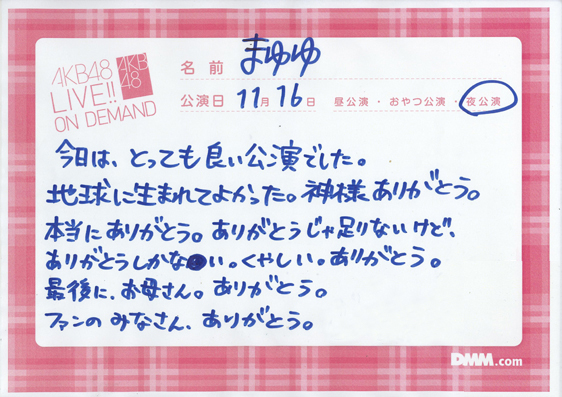 AKB48
LIVE!!
ON DEMAND
AKB
48
名前 まゆゆ
公演日 11月16日 昼公演・おやつ公演・夜公演
今日は、とっても良い公演でした。
地球に生まれてよかった。神様ありがとう。
本当にありがとう。ありがとうじゃ足りないけど、
ありがとうしかない。くやしい。ありがとう。
最後に、お母さん。ありがとう。
ファンのみなさん、ありがとう。
DMM.com